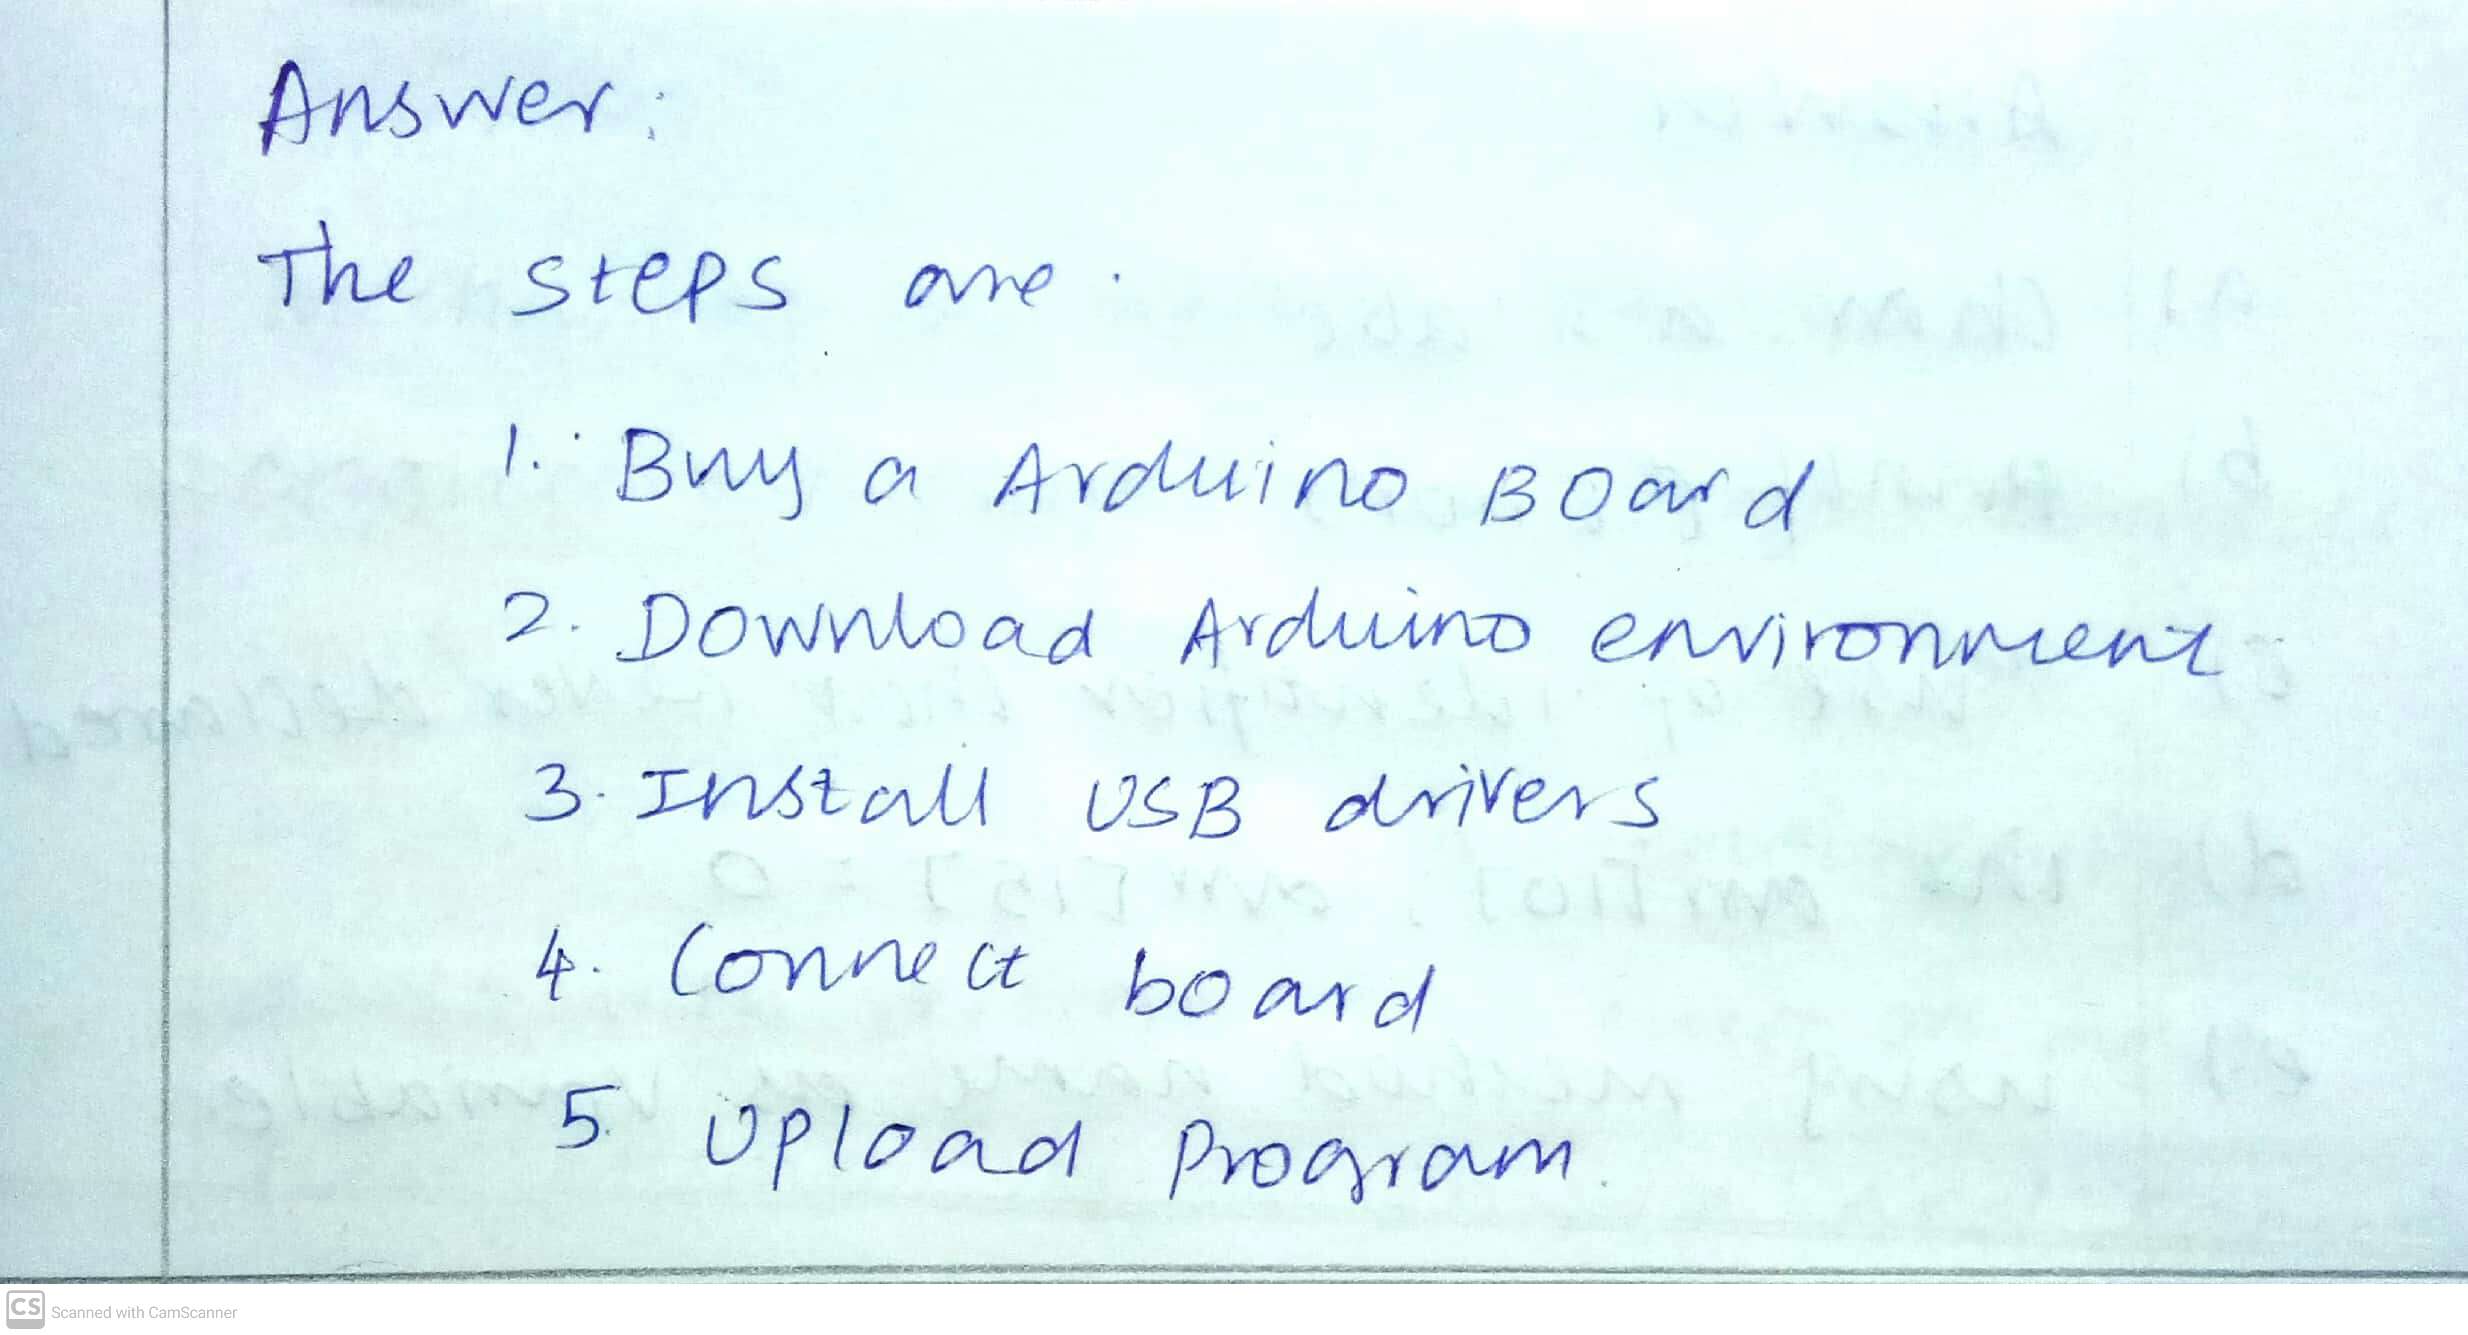 Answer:
The steps are.
1. Buy a Arduino Board
2. Download Arduino environment
3. Install USB drivers
4. Connect board
5. Upload Program.
CS Scanned with CamScanner